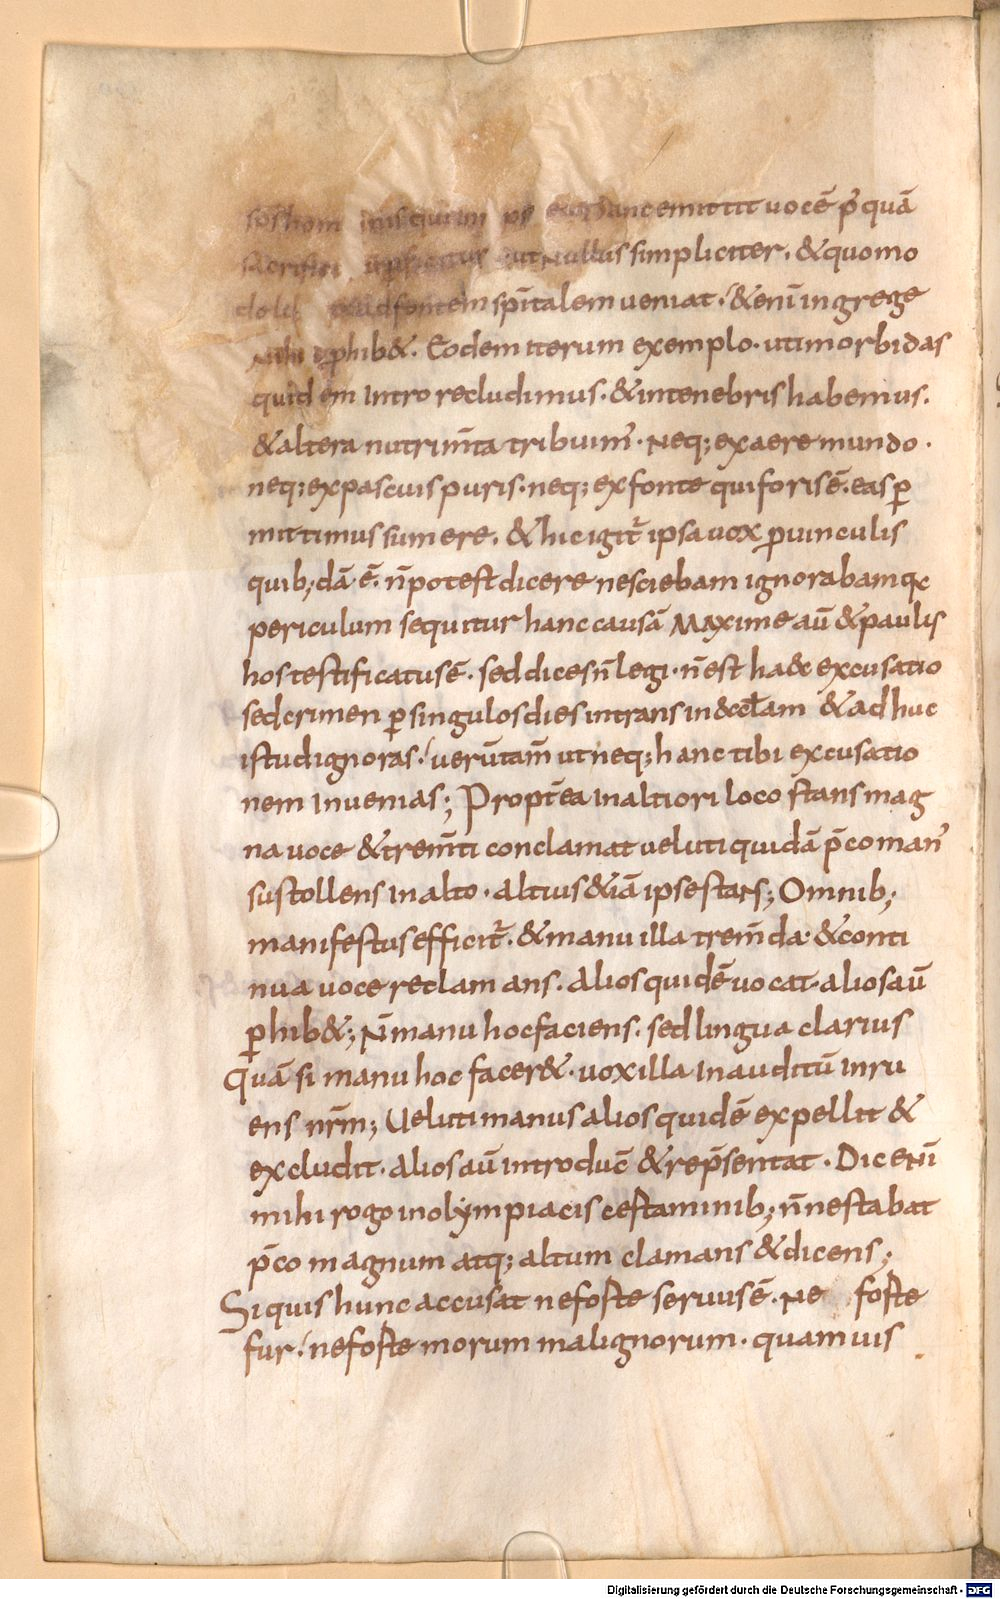 emittit uocē p̄ quā
nullus simpliciter. & quomo
fontem sp̄italem ueniat. & enī in grege
phib&. Eodem iterum exemplo. uti morbidas
quidem intro recludimus. & in tenebris habemus.
& altera nutrim̄ta tribuim̄. neq; ex aere mundo.
neq; ex pascuis puris. neq; ex fonte qui foris ē. eas p
mittimus sumere. & hic igit̄ ipsa uox p uinculis
quib;dā ē. n̄ potest dicere nesciebam ignorabamq;
periculum sequitur hanc causā Maxime aū & paulis
hos testificatus ē. sed dices n̄ legi. n̄ est haec excusatio
sed crimen p singulos dies intrans in eccl̄am & adhuc
istud ignoras. uerūtam̄ ut neq; hanc tibi excusatio
nem inuenias; Propt̄ea in altiori loco stans mag
na uoce & trem̄ti conclamat ueluti quidā p̄co man̄
sustollens in alto. altius &iā ipse stans; Omnib;
manifestus efficit̄. & manu illa trem̄da. & conti
nua uoce reclamans. alios quidē uocat. alios aū
phib&; N̄ manu hoc faciens. sed lingua clarius
quā si manu hoc facer&. uox illa in auditū inru
ens nr̄m; Ueluti manus alios quidē expellit &
excludit. alios aū introduc̄ & rep̄sentat. Dic enī
mihi rogo in olympiacis certaminib; n̄ne stabat
p̄co magnum atq; altum clamans & dicens;
Si quis hunc accusat ne forte seruus ē. Ne forte
fur. ne forte morum malignorum. quamuis
Digitalisierung gefördert durch die Deutsche Forschungsgemeinschaft - DFG